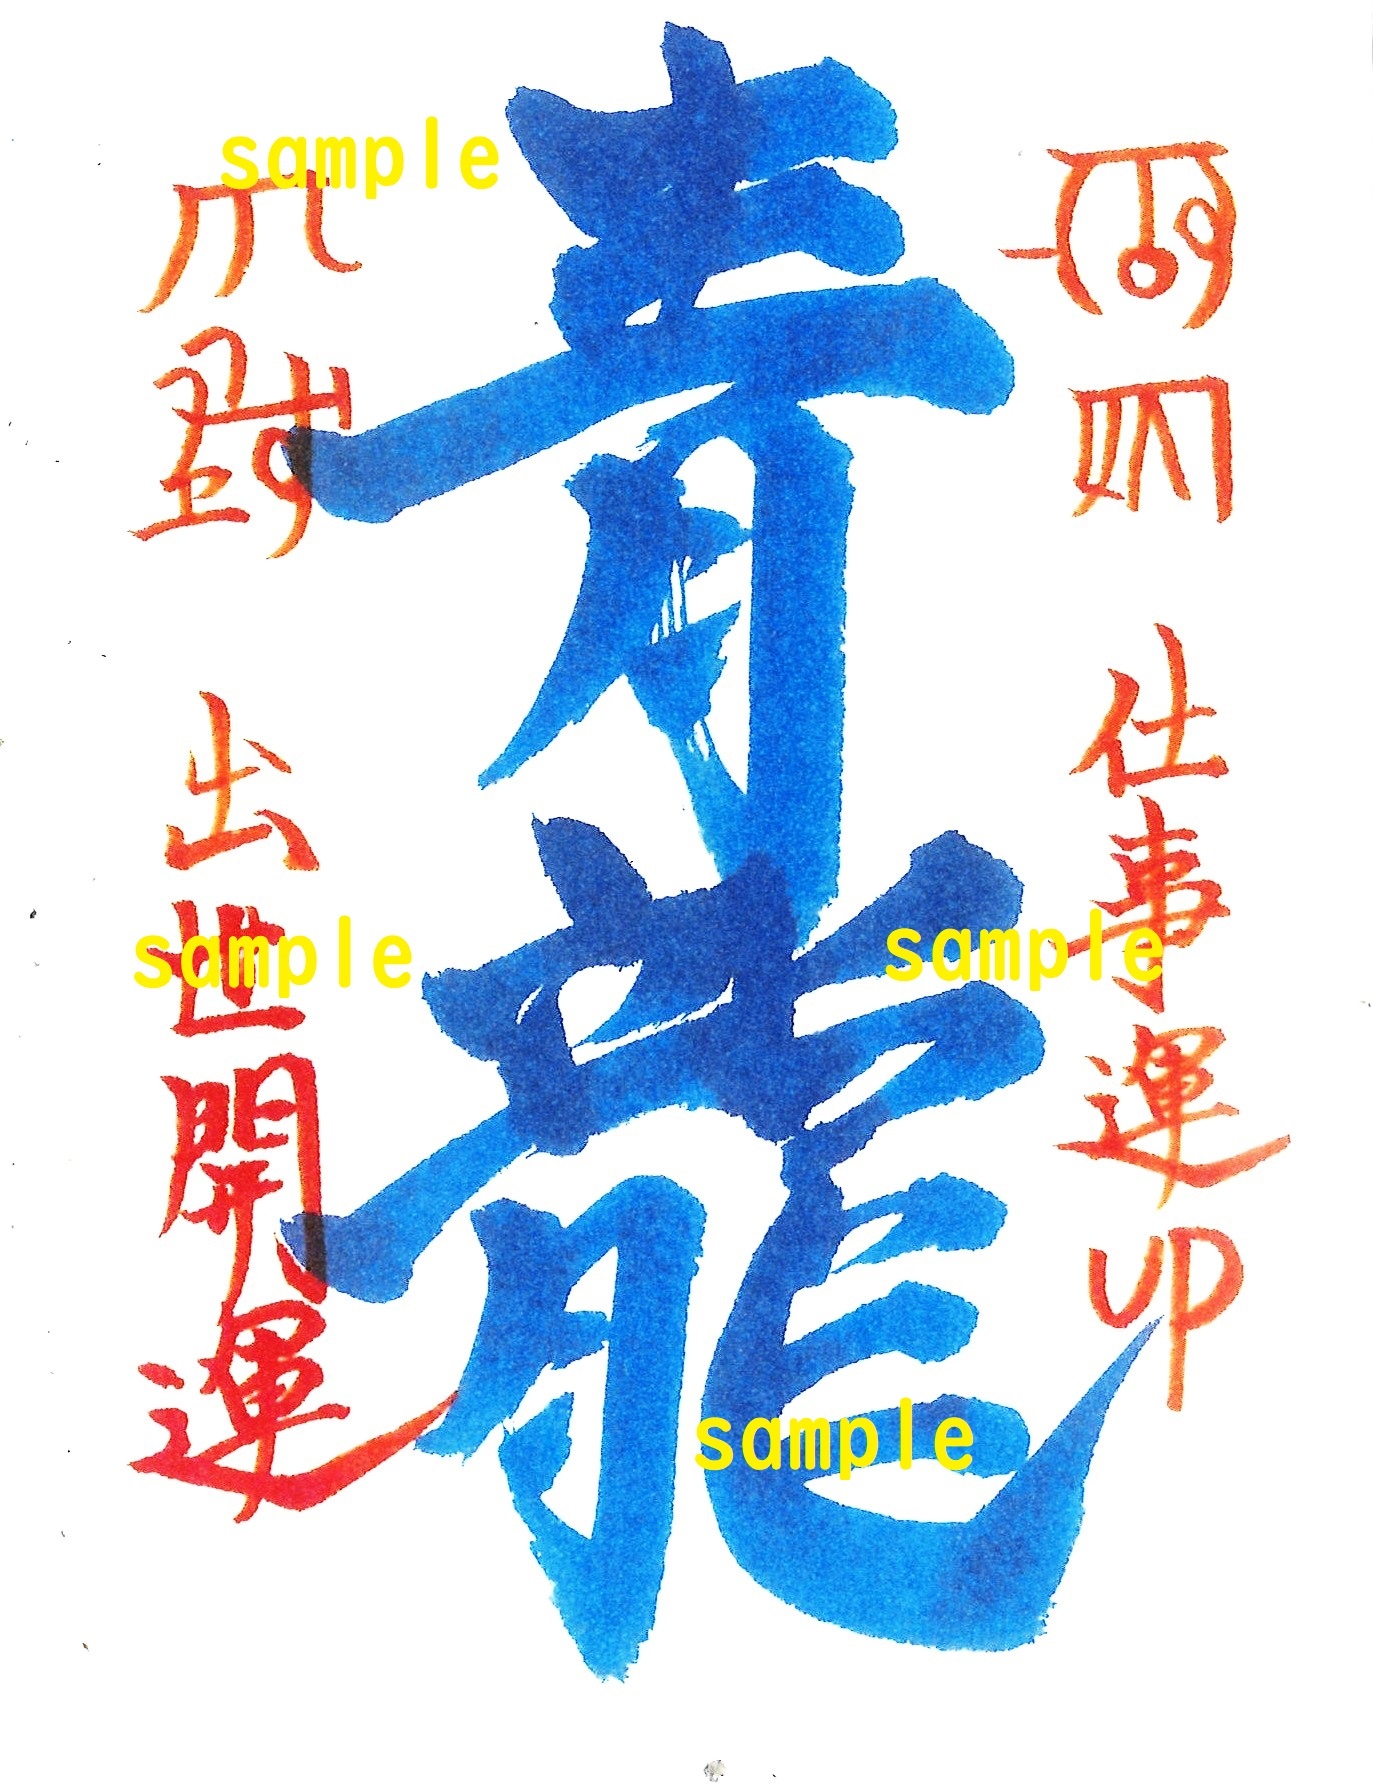 仕事運UP
青龍
出世開運
sample
sample
sample
sample